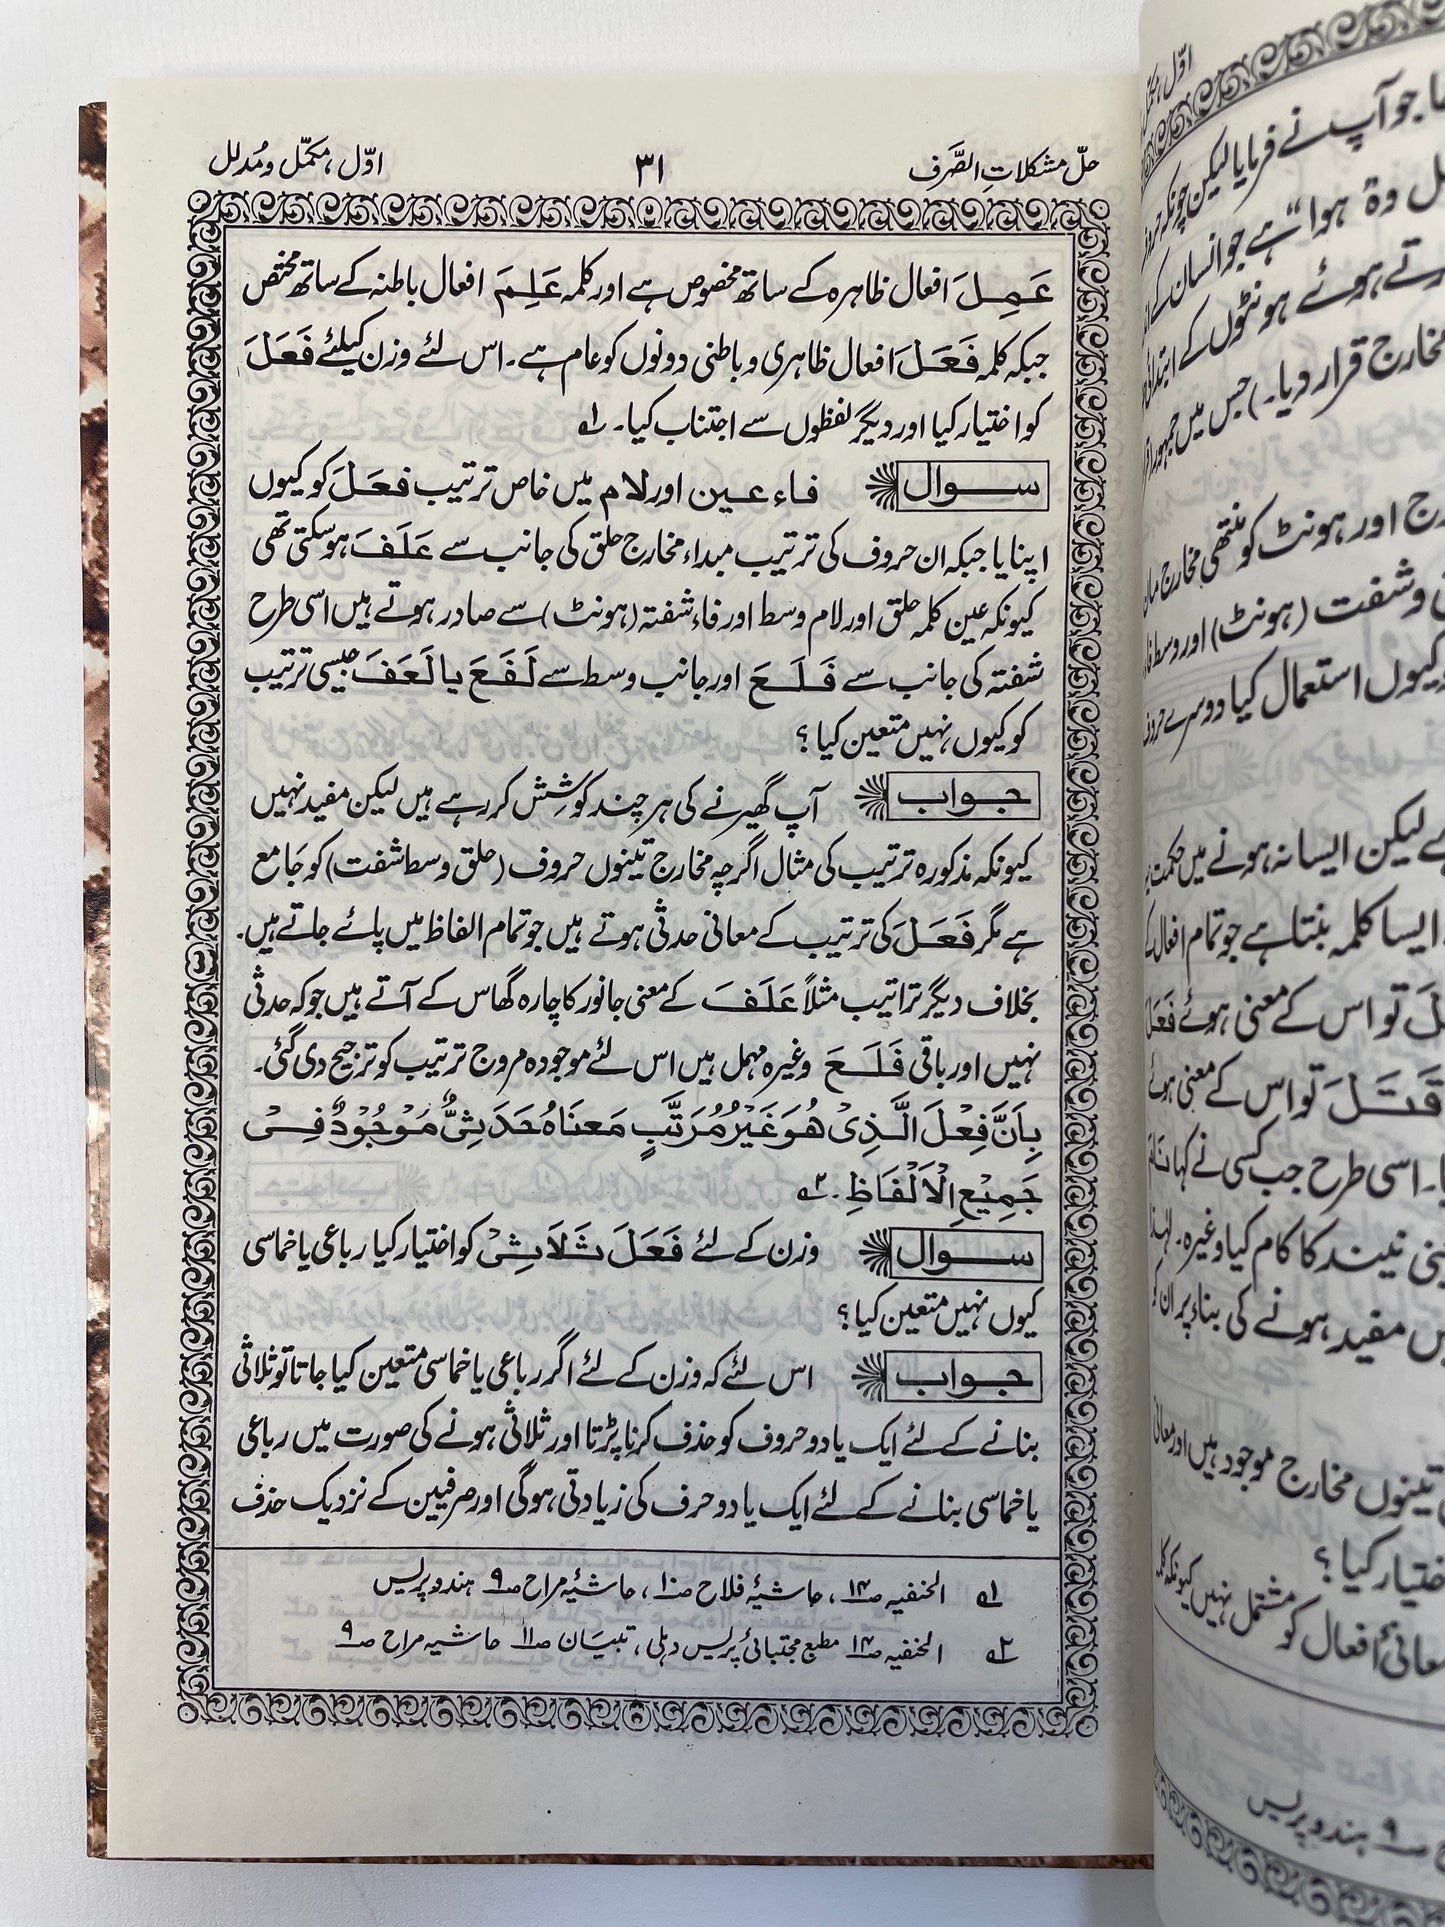 حلّ مشکلاتِ الصَّرف
۳۱
اوّل، مکمّل و مُدلل
عَمِلَ افعال ظاہرہ کے ساتھ مخصوص ہے اور کلمہ عَلِمَ افعال باطنہ کے ساتھ مختص
جبکہ کلمہ فَعَلَ افعال ظاہری و باطنی دونوں کو عام ہے۔ اس لئے وزن کیلئے فَعَلَ
کو اختیار کیا اور دیگر لفظوں سے اجتناب کیا۔ ۱؎
سوال فاء عین اور لام میں خاص ترتیب فعَلَ کو کیوں
اپنایا جبکہ ان حروف کی ترتیب مبداء مخارج حلق کی جانب سے عَلَفَ ہوسکتی تھی
کیونکہ عین کلمہ حلق اور لام وسط اور فاء شفتہ (ہونٹ) سے صادر ہوتے ہیں اسی طرح
شفتہ کی جانب سے فَلَعَ اور جانب وسط سے لَفَعَ یا لَعَفَ جیسی ترتیب
کو کیوں نہیں متعین کیا؟
جواب آپ گھیرنے کی ہر چند کوشِش کر رہے ہیں لیکن مفید نہیں
کیونکہ مذکورہ ترتیب کی مثال اگرچہ مخارج تینوں حروف (حلق وسط شفت) کو جامع
ہے مگر فَعَلَ کی ترتیب کے معانی حدثی ہوتے ہیں جو تمام الفاظ میں پائے جاتے ہیں۔
بخلاف دیگر تراتیب مثلاً عَلَفَ کے معنی جانور کا چارہ گھاس کے آتے ہیں جو کہ حدثی
نہیں اور باقی فَلَعَ وغیرہ مہمل ہیں اس لئے موجودہ مروج ترتیب کو ترجیح دی گئی۔
بِاَنَّ فِعْلَ الَّذِیْ ھُوَ غَیْرُ مُرَتَّبٍ مَعنَاہُ حَدَثِیٌّ مَوْجُوْدٌ فِیْ
جَمِیْعِ الْاَلْفَاظِ۔ ۲؎
سوال وزن کے لئے فَعَلَ ثَلَاثِیْ کو اختیار کیا رباعی یا خماسی
کیوں نہیں متعین کیا؟
جواب اس لئے کہ وزن کے لئے اگر رباعی یا خماسی متعین کیا جاتا تو ثلاثی
بنانے کے لئے ایک یا دو حروف کو حذف کرنا پڑتا اور ثلاثی ہونے کی صورت میں رباعی
یا خماسی بنانے کے لئے ایک یا دو حرف کی زیادتی ہوگی اور صرفیین کے نزدیک حذف
۱؎ الحنفیہ صـ۱۴، حاشیۂ فلاح صـ۱۰، حاشیۂ مراح صـ۹ ہندو پریس
۲؎ الحنفیہ صـ۱۴ مطبع مجتبائی پریس دہلی، تبیان صـ۱۱ حاشیہ مراح صـ۹
جو آپ نے فرمایا لیکن چونکہ
وہ "ہوا" ہے جو انسان کے
ہوئے ہونٹوں کے ابتدائی
مخارج قرار دیا۔) جس میں جمہور
اور ہونٹ کو منتھی مخارج
وشفت (ہونٹ) اور وسط
کیوں استعمال کیا دوسرے حروف
لیکن ایسا نہ ہونے میں حکمت
ایسا کلمہ بنتا ہے جو تمام افعال کے
تو اس کے معنی ہوئے فَعَلَ
قَتَلَ تو اس کے معنی ہوئے
اسی طرح جب کسی نے کہا نَامَ
نیند کا کام کیا وغیرہ۔ لہٰذا
مفید ہونے کی بناء پر ان کو
تینوں مخارج موجود ہیں اور معانی
اختیار کیا؟
معانی افعال کو مشتمل نہیں کیونکہ کلمہ
صـ۹ ہندو پریس